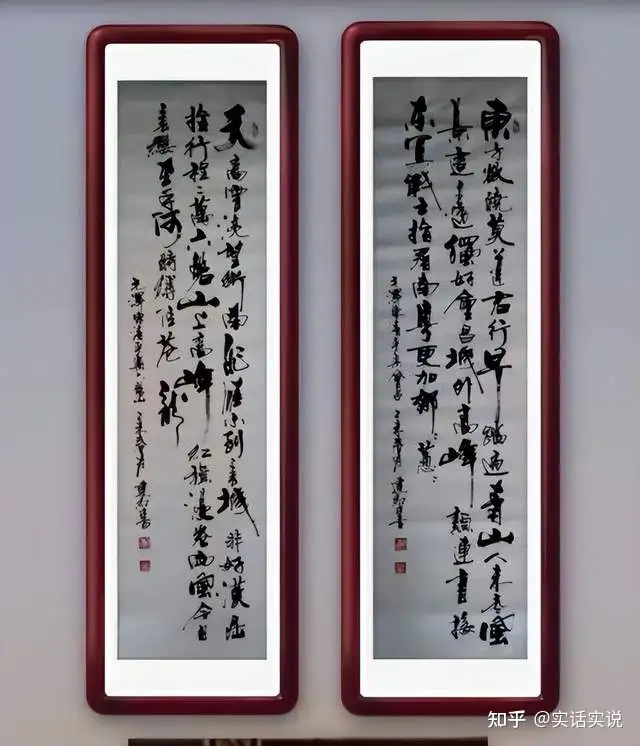 東方欲曉莫道君行早踏遍青山人未老風
景這邊獨好會昌城外高峰顛連直接
东溟战士指看南粤更加郁々葱々
毛澤東清平樂會昌
天高雲淡望斷南飛雁不到長城非好漢屈
指行程二萬六盤山上高峰紅旗漫卷西風今日
長纓在手何時縛住蒼龍
毛澤東清平樂六盤山
知乎 @实话实说